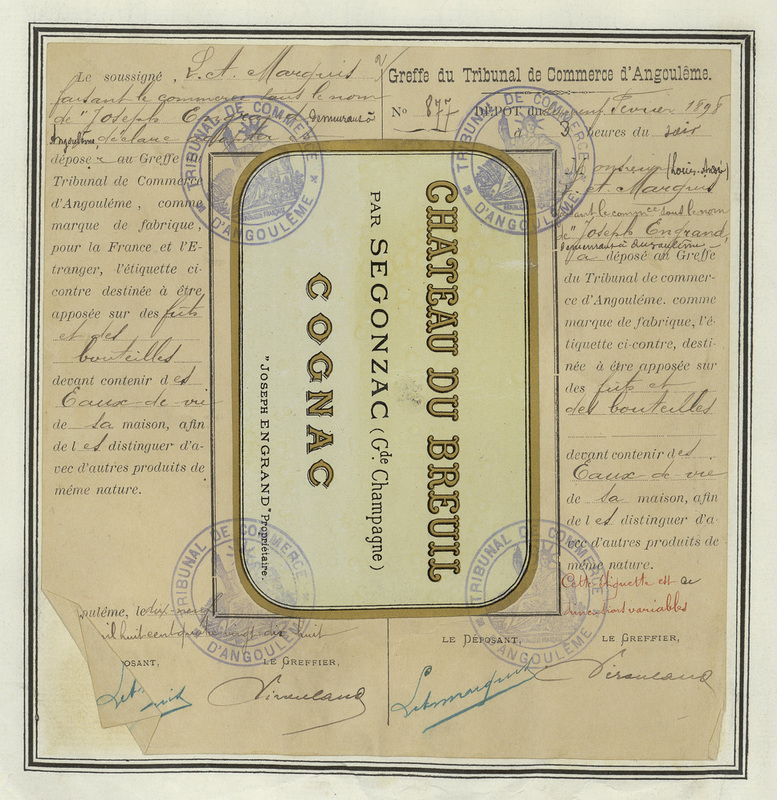 Le soussigné, L. A. Marquis
faisant le commerce sous le nom
de "Joseph Engrand" demeurant à
Angoulême déclare
déposer au Greffe du
Tribunal de Commerce
d'Angoulême, comme
marque de fabrique,
pour la France et l'E-
tranger, l'étiquette ci-
contre destinée à être
apposée sur des fûts
et des
bouteilles
devant contenir des
Eaux-de-vie
de sa maison, afin
de les distinguer d'a-
vec d'autres produits de
même nature.
oulême, le dix-neuf
mil huit cent quatre vingt dix huit
OSANT,
LE GREFFIER,
CHATEAU DU BREUIL
PAR SEGONZAC (Gde Champagne)
COGNAC
"JOSEPH ENGRAND" Propriétaire.
Greffe du Tribunal de Commerce d'Angoulême.
No 877 DÉPOT du neuf Février 1898
à 3 heures du soir
Monsieur (Louis-
L. et Marquis
sous le nom
de "Joseph Engrand"
demeurant à Angoulême
a déposé au Greffe
du Tribunal de commer-
ce d'Angoulême. comme
marque de fabrique, l'é-
tiquette ci-contre, desti-
née à être apposée sur
des fûts et
des bouteilles
devant contenir des
Eaux-de-vie
de sa maison, afin
de les distinguer d'a-
vec d'autres produits de
même nature.
Cette étiquette est de
dimensions variables
LE DÉPOSANT,
LE GREFFIER,
TRIBUNAL DE COMMERCE D'ANGOULÊME
TRIBUNAL DE COMMERCE D'ANGOULÊME
TRIBUNAL DE COMMERCE D'ANGOULÊME
TRIBUNAL DE COMMERCE D'ANGOULÊME